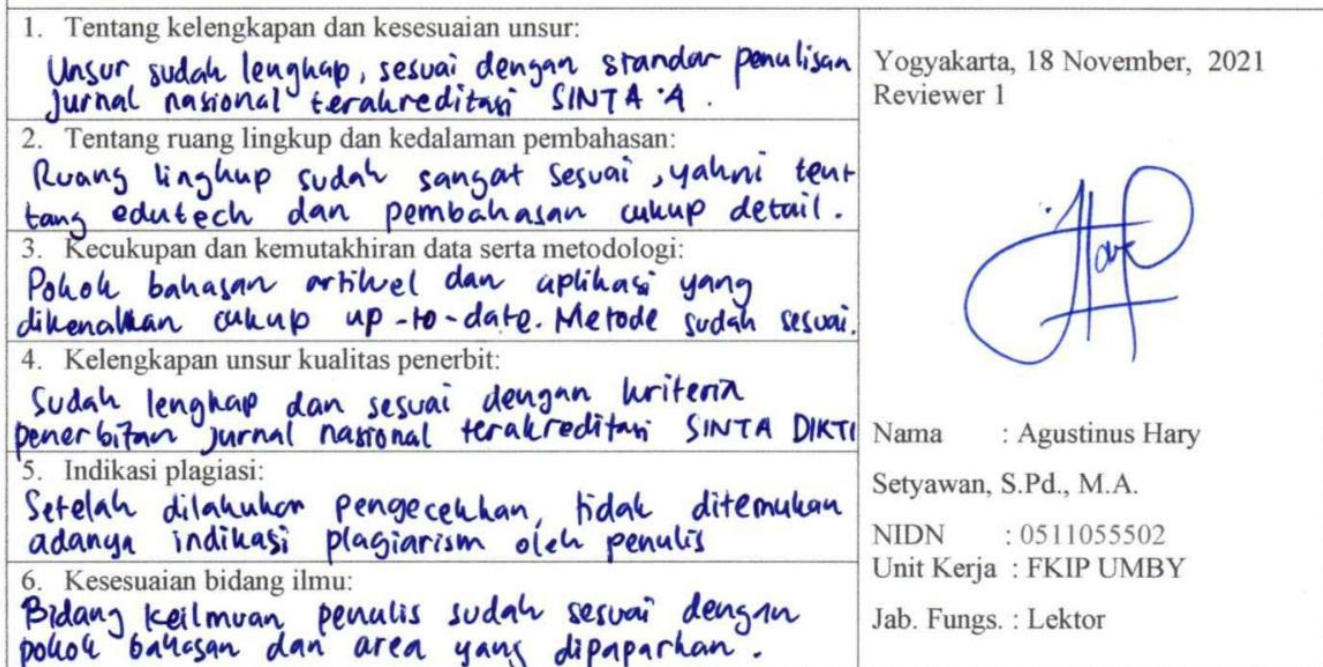 1. Tentang kelengkapan dan kesesuaian unsur:
Unsur sudah lengkap, sesuai dengan standar penulisan
Jurnal nasional terakreditasi SINTA 4.
2. Tentang ruang lingkup dan kedalaman pembahasan:
Ruang lingkup sudah sangat sesuai, yakni tent
tang edutech dan pembahasan cukup detail.
3. Kecukupan dan kemutakhiran data serta metodologi:
Pokok bahasan artikel dan aplikasi yang
dikenalkan cukup up-to-date. Metode sudah sesuai.
4. Kelengkapan unsur kualitas penerbit:
Sudah lengkap dan sesuai dengan kriteria
penerbitan jurnal nasional terakreditasi SINTA DIKTI
5. Indikasi plagiasi:
Setelah dilakukan pengecekkan, tidak ditemukan
adanya indikasi plagiarism oleh penulis
6. Kesesuaian bidang ilmu:
Bidang keilmuan penulis sudah sesuai dengan
pokok bahasan dan area yang dipaparkan.
Yogyakarta, 18 November, 2021
Reviewer 1
Nama : Agustinus Hary
Setyawan, S.Pd., M.A.
NIDN : 0511055502
Unit Kerja : FKIP UMBY
Jab. Fungs. : Lektor